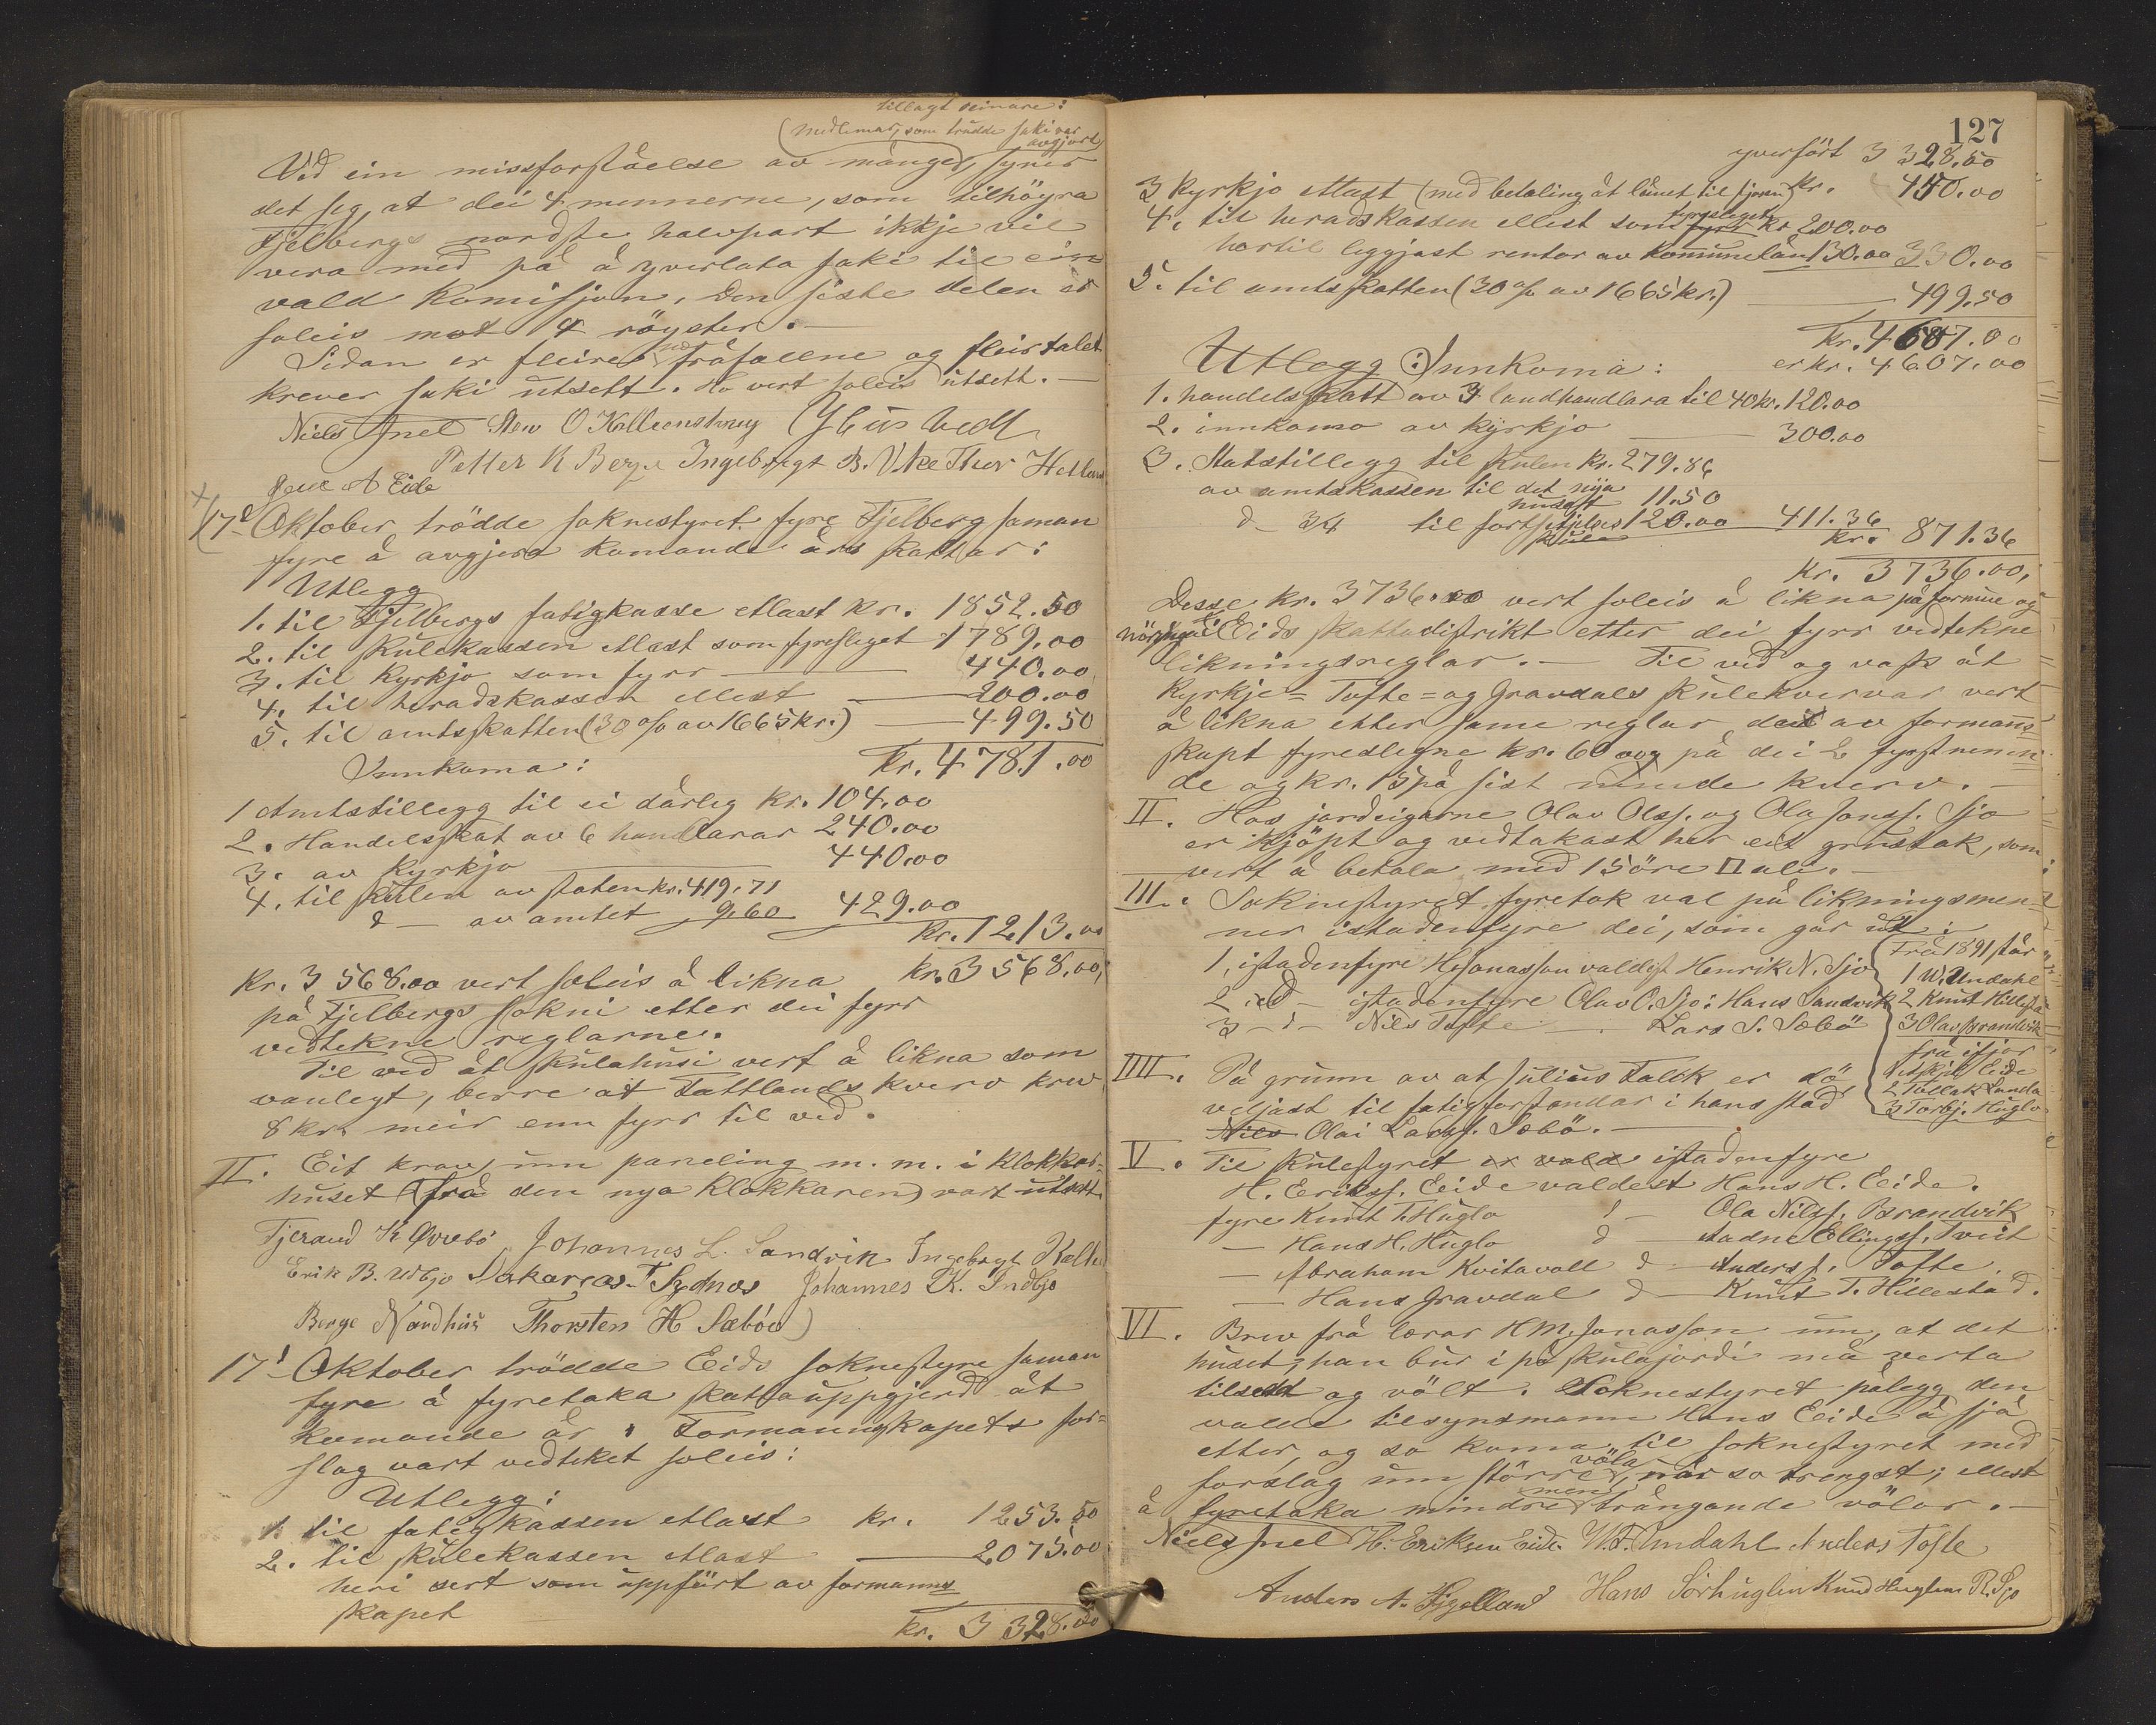 tillagt seinare:
(medlemar, som trudde saki var
avgjort)
Vid ein missforståelse av mange, syner
det seg, at dei 4 mennerne, som tilhöyra
Fjelbergs nordste halvpart ikkje vil
vera med på å yverlata saki til ein
vald komisjon. Den siste delen er
soleis mot 14 röyster.
Sidan er fleire fråfallne og fleirtalet
krever saki utsett. Ho vert soleis utsett.
Niels Juel
Petter K Berge Ingebrigt B. Vke Thor Hetland
A Eide
17d Oktober trödde soknestyret fyre Fjelberg saman
fyre å avgjera komande års skattar:
Utlegg
1. til Fjelbergs fatigkasse ellast kr. 1852.50
2. til skulekassen ellast som fyresleget 1789.00
3. til kyrkjo som fyrr 440.00
4. til heradskassen ellest 200.00
5. til amtsskatten (30 % av 1665 kr.) 499.50
kr. 4781.00
Innkoma:
1 Amtstillegg til ei dårleg kr. 104.00
2. Handelsskat av 6 handlarar 240.00
3. av kyrkjo 440.00
4. til skulen av staten kr. 419.71
d – av amtet 9.60 429.00
kr. 1213.00
kr. 3568.00 vert soleis å likna kr. 3568.00,
på Fjelbergs sokni etter dei fyrr
vedtekne reglarne.
Til ved åt skulahusi vert å likna som
vanlegt, berre at Tattlands kverv krev
8 kr. meir enn fyrr til ved.
II. Eit krav um paneling m. m. i klokkar=
huset (frå den nya klokkaren) vart utsett.
Tjerand K Övrebö Johannes L. Sandvik Ingebrigt
Erik B. Udbjo Sakarias T Sydnes Johannes K. Indbjo
Berge Nordhus Thorsten H Sæböe
17d Oktober trödde Eids soknestyre saman
fyre å fyretaka skattauppgjerd åt
komande år. Formannskapets for=
slag vart vedteket soleis:
Utlegg:
1. til fatigkassen ellast kr. 1253.50
2. til skulekassen ellast 2075.00
heri sert som uppfört av formanns
skapet
kr. 3328.50
127
yverfört 3328.50
3 kyrkjo ellast (med betaling åt lånet til fjorn) kr. 450.00
4. til heradskassen ellest som fyreslegete kr 200.00
hartil leggjast rentor av komunelån 130.00 330.00
5. til amtsskatten (30 % av 1665 kr.) 499.50
kr. 4607.00
er kr. 4607.00
Utlegg: Innkoma:
1. handelsskatt av 3 landhandlara til 40 kr. 120.00
2. innkoma av kyrkjo 300.00
3. Statstillegg til skulen kr. 279.86
av amtskassen til det nya
husaft 11.50
d – 34 til fortsetjelses 120.00 411.36
skule kr. 871.36
kr. 3736.00,
Desse kr. 3736.00 vert soleis å likna på formue og
næring i Eids skattedistrikt etter dei fyrr vedtekne
likningsreglar. – Til ved og vask åt
Kyrkje= Tofte= og Gravdals skulekvervar vert
å likna etter same reglar dei av formanns=
skapt fyreslegne kr. 60 på dei 2 fyrstnemn=
de og kr. 15 på sist nemde kverv.
II. Hos jordeigarne Olav Olss. og Ola Janss. Sjo
er kjöpt og vedtakast her eit grustak, som
vert å betala med 15 öre □ ali.
III. Soknestyret fyretok val på likningsmen=
ner istadenfyre dei, som går ut:
1, istadenfyre H Jonassen valdest Henrik N. Sjo
2 d – istadenfyre Olav O. Sjo: Hans Sandvik
3 – d – Nils Tofte – Lars S. Sæbö
Frå 1891 står
1 W. Undahl
2 Knut Hillestad
3 Olav Brandvik
frå ifjor
2 Tollak Sunde
3 Torbj. Huglo
IIII. På grunn av at Julius Falck er dö
veljast til fatigforstandar i hans stad
Nils Olai Larss. Sæbö.
V. Til skulestyret er vald istadenfyre
H. Erikss. Eide valdest Hans H. Eide.
fyre Knut T. Huglo d – Ola Nilss. Brandvik
– Hans H. Huglo d – Aadne Ellingss. Tveit
– Abraham Kvitavoll d – Anders J. Tofte.
– Hans Gravdal d – Knut T. Hillestad.
VI. Brev frå lærar H M. Jonassen um, at det
huset, han bur i på skulajordi må verta
tilsedt og völt. Soknestyret pålegg den
valde tilsynsmann Hans Eide å sjå
etter, og so koma til soknestyret med
forslag um större völa, når so trengst; ellest
å fyretaka mindre men trångande völar.
Niels Juel H. Eriksen Eide. W. F. Undahl Anders Tofte
Anders A. Hjgelland Hans Sörhuglen Knud Huglen R. Sjo